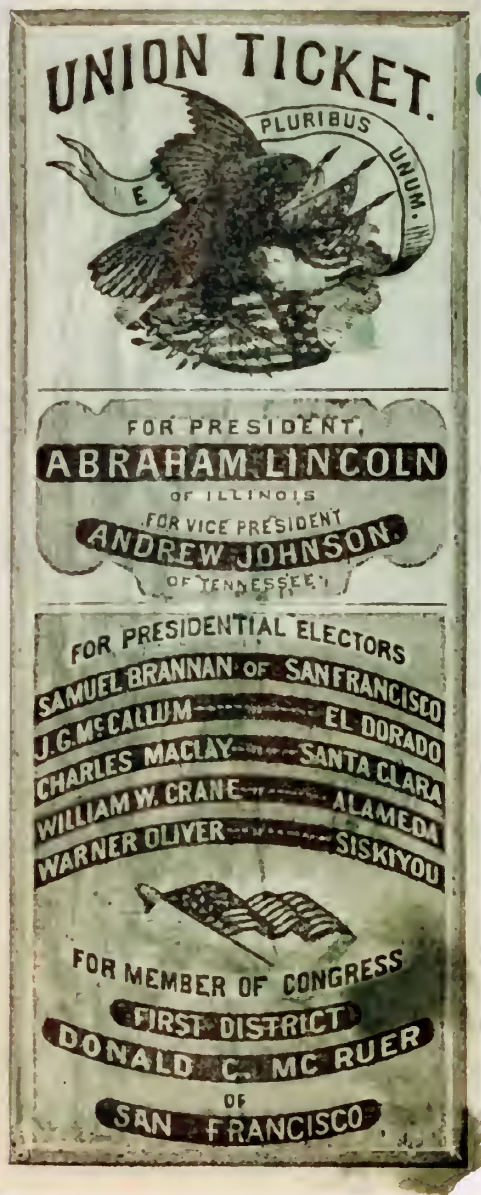 UNION TICKET.
E PLURIBUS UNUM.
FOR PRESIDENT,
ABRAHAM LINCOLN
OF ILLINOIS
FOR VICE PRESIDENT
ANDREW JOHNSON.
OF TENNESSEE,
FOR PRESIDENTIAL ELECTORS
SAMUEL BRANNAN OF SAN FRANCISCO
J. G. McCALLUM EL DORADO
CHARLES MACLAY SANTA CLARA
WILLIAM W. CRANE ALAMEDA
WARNER OLIVER SISKIYOU
FOR MEMBER OF CONGRESS
FIRST DISTRICT
DONALD C. MC RUER
OF
SAN FRANCISCO